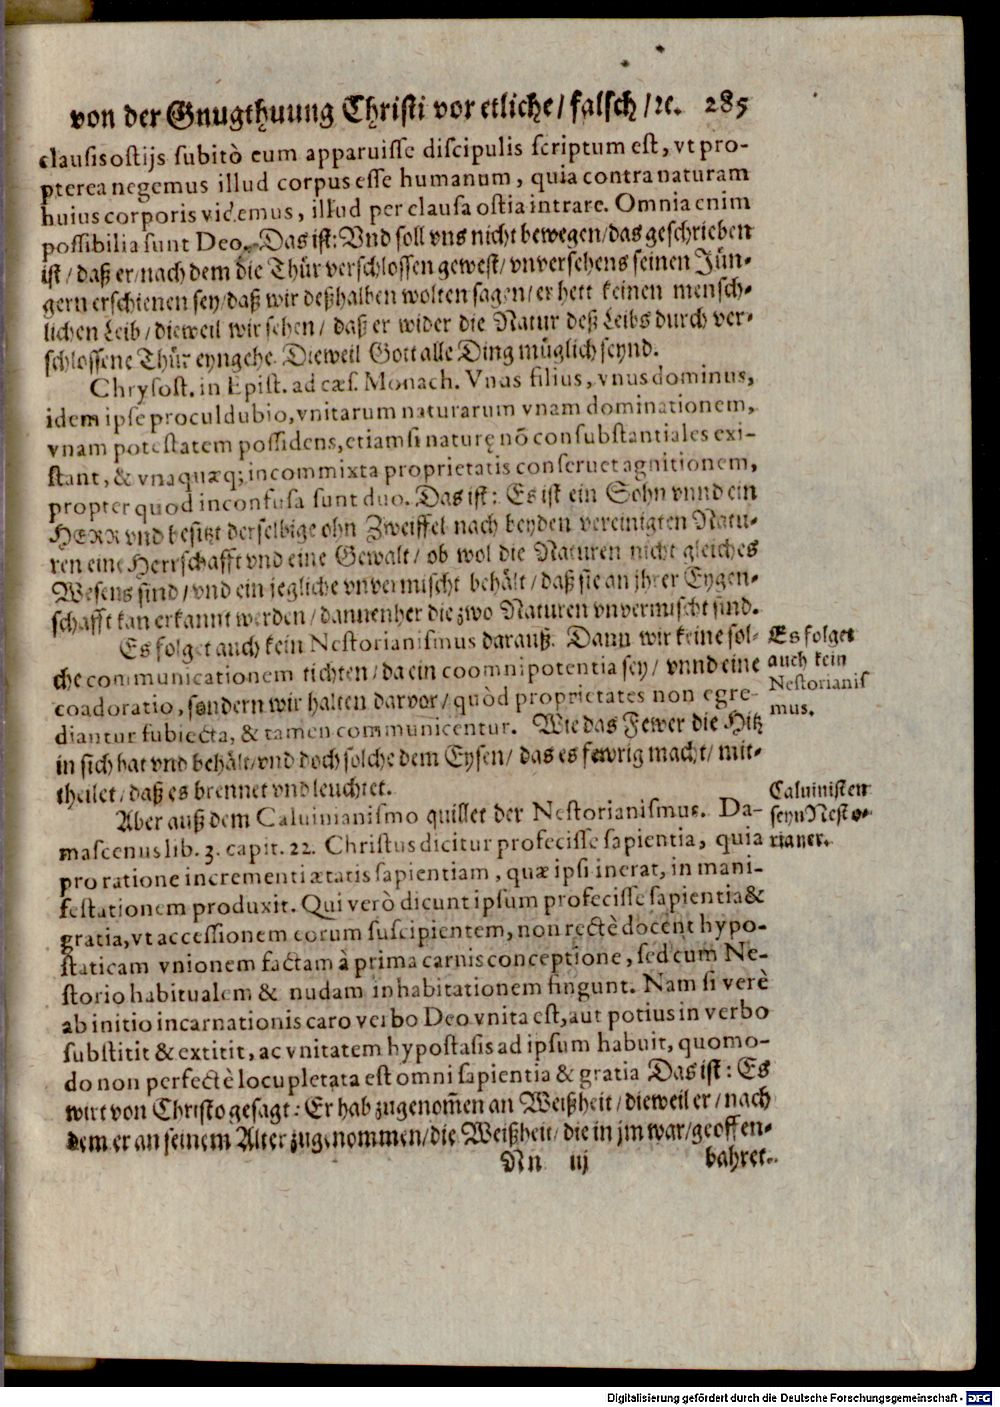 von der Gnugthuung Christi vor etliche/ falsch/ ꝛc. 285
clausis ostijs subitò eum apparuisse discipulis scriptum est, vt pro-
pterea negemus illud corpus esse humanum, quia contra naturam
huius corporis videmus, illud per clausa ostia intrare. Omnia enim
possibilia sunt Deo. Das ist: Vnd soll vns nicht bewegen/ das geschrieben
ist/ daß er/ nach dem die Thür verschlossen gewest/ vnversehens seinen Jün-
gern erschienen sey/ daß wir deßhalben wolten sagen/ er hett keinen mensch-
lichen Leib/ dieweil wir sehen/ daß er wider die Natur deß Leibs durch ver-
schlossene Thür eyngehe. Dieweil Gott alle Ding müglich seynd.
Chrysost. in Epist. ad cæs. Monach. Vnus filius, vnus dominus,
idem ipse proculdubio, vnitarum naturarum vnam dominationem,
vnam potestatem possidens, etiamsi naturę nõ consubstantiales exi-
stant, & vnaquæq; incommixta proprietatis conseruet agnitionem,
propter quod inconfusa sunt duo. Das ist: Es ist ein Sohn vnnd ein
HERR vnd besitzt derselbige ohn Zweiffel nach beyden vereinigten Natu-
ren eine Herrschafft vnd eine Gewalt/ ob wol die Naturen nicht gleiches
Wesens sind/ vnd ein jegliche vnvermischt behält/ daß sie an jhrer Eygen-
schafft kan erkannt werden/ dannenher die zwo Naturen vnvermischt sind.
Es folget auch kein Nestorianismus darauß. Dann wir keine sol-
che communicationem tichten/ da ein coomnipotentia sey/ vnnd eine
coadoratio, sondern wir halten darvor/ quòd proprietates non egre-
diantur subiecta, & tamen communicentur. Wie das Fewer die Hitz
in sich hat vnd behält/ vnd doch solche dem Eysen/ das es fewrig macht/ mit-
theilet/ daß es brennet vnd leuchtet.
Es folget
auch kein
Nestorianis
mus.
Aber auß dem Caluinianismo quillet der Nestorianismus. Da-
mascenus lib. 3. capit. 22. Christus dicitur profecisse sapientia, quia
pro ratione incrementi ætatis sapientiam, quæ ipsi inerat, in mani-
festationem produxit. Qui verò dicunt ipsum profecisse sapientia &
gratia, vt accessionem eorum suscipientem, non rectè docent hypo-
staticam vnionem factam à prima carnis conceptione, sed cum Ne-
storio habitualem & nudam inhabitationem fingunt. Nam si verè
ab initio incarnationis caro verbo Deo vnita est, aut potius in verbo
substitit & extitit, ac vnitatem hypostasis ad ipsum habuit, quomo-
do non perfectè locupletata est omni sapientia & gratia Das ist: Es
wirt von Christo gesagt: Er hab zugenom̃en an Weißheit/ dieweil er/ nach
dem er an seinem Alter zugenommen/ die Weißheit/ die in jm war/ geoffen-
Caluinisten
seyn Nesto-
rianer.
Nn iij bahret.
Digitalisierung gefördert durch die Deutsche Forschungsgemeinschaft - DFG